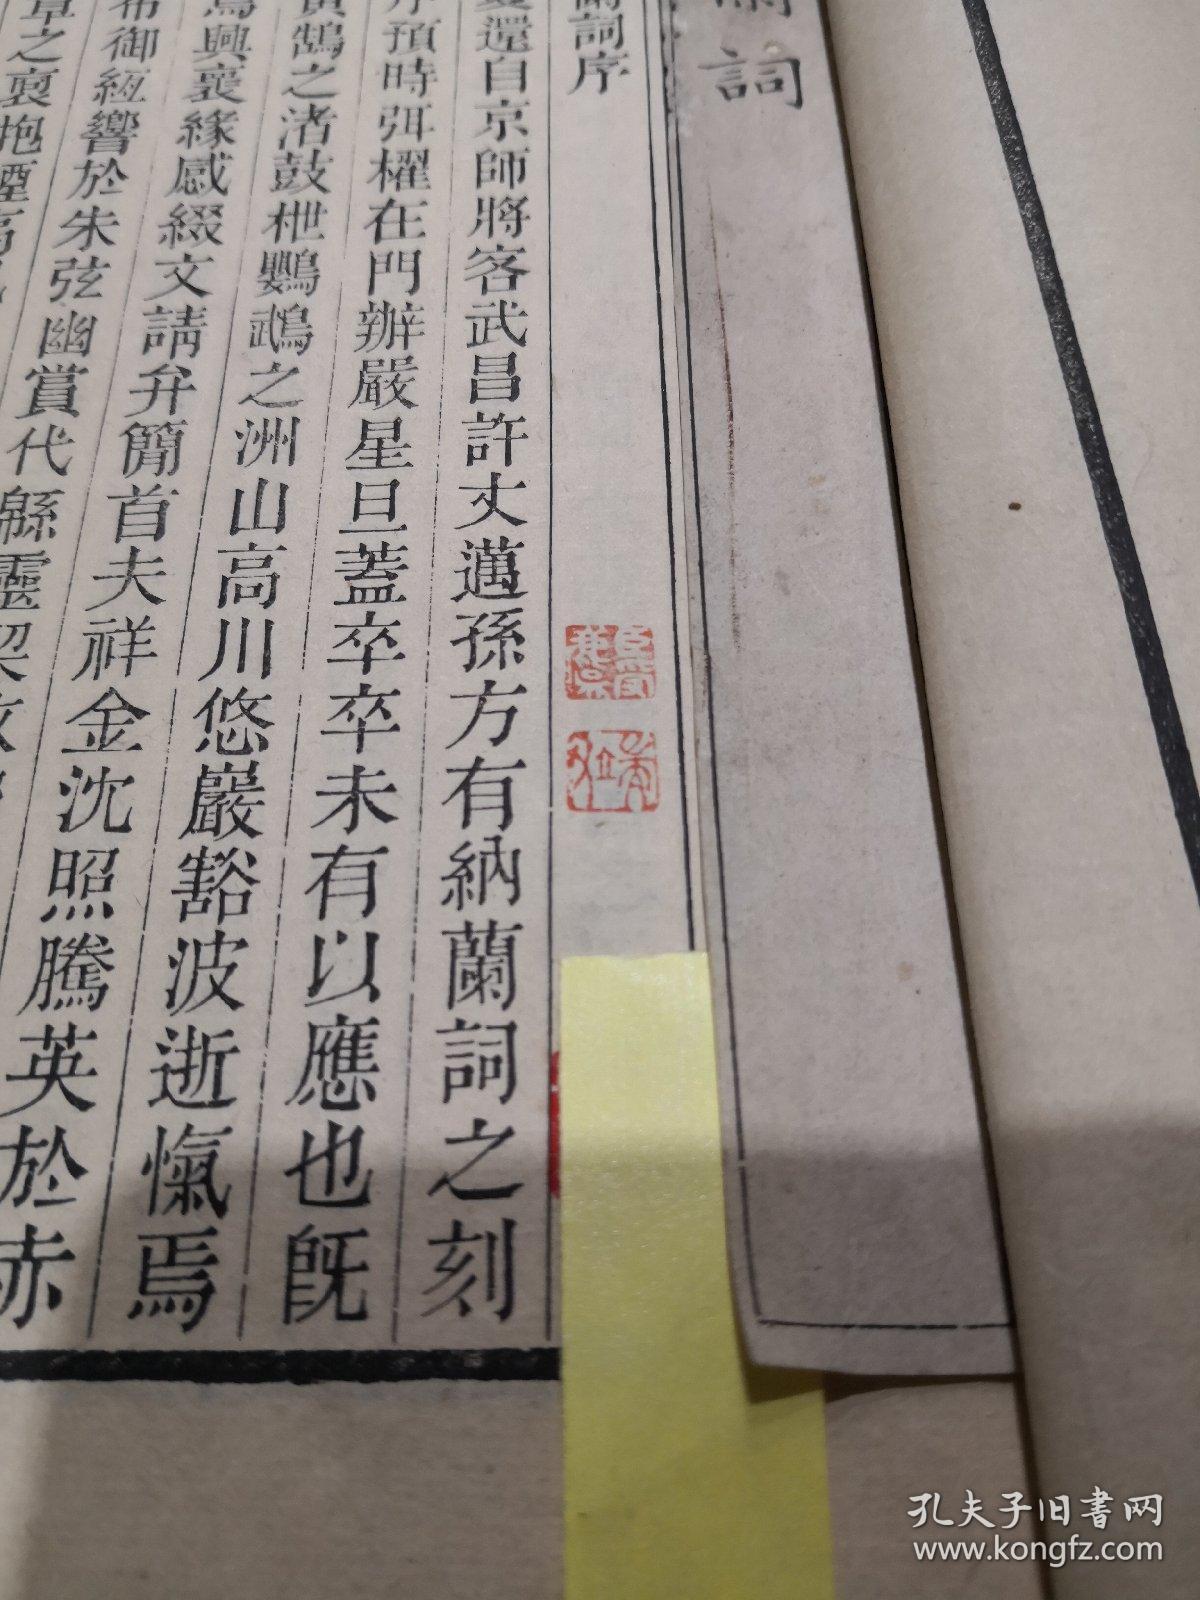 詞
蘭詞序
還自京師將客武昌許丈邁孫方有納蘭詞之刻
序預時弭櫂在門辦嚴星旦蓋卒卒未有以應也旣
黃鵠之渚鼓枻鸚鵡之洲山高川悠巖豁波逝愾焉
焉興裒緣感綴文請弁簡首夫祥金沈照騰英於赤
布御絚響於朱弦幽賞代緜靈契
章之裒抱
孔夫子旧书网
www.kongfz.com